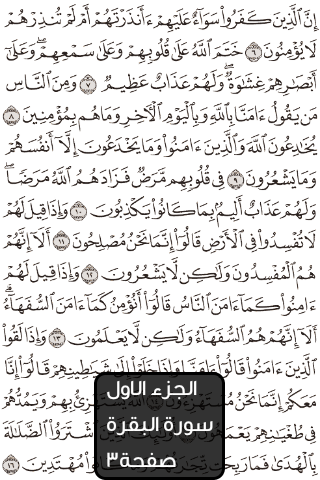 إِنَّ الَّذِينَ كَفَرُوا سَوَاءٌ عَلَيْهِمْ ءَأَنذَرْتَهُمْ أَمْ لَمْ تُنذِرْهُمْ
لَا يُؤْمِنُونَ ٦ خَتَمَ اللَّهُ عَلَىٰ قُلُوبِهِمْ وَعَلَىٰ سَمْعِهِمْ ۖ وَعَلَىٰ
أَبْصَارِهِمْ غِشَاوَةٌ ۖ وَلَهُمْ عَذَابٌ عَظِيمٌ ٧ وَمِنَ النَّاسِ
مَن يَقُولُ ءَامَنَّا بِاللَّهِ وَبِالْيَوْمِ الْآخِرِ وَمَا هُم بِمُؤْمِنِينَ ٨
يُخَادِعُونَ اللَّهَ وَالَّذِينَ ءَامَنُوا وَمَا يَخْدَعُونَ إِلَّا أَنفُسَهُمْ
وَمَا يَشْعُرُونَ ٩ فِي قُلُوبِهِم مَّرَضٌ فَزَادَهُمُ اللَّهُ مَرَضًا ۖ
وَلَهُمْ عَذَابٌ أَلِيمٌ بِمَا كَانُوا يَكْذِبُونَ ١٠ وَإِذَا قِيلَ لَهُمْ
لَا تُفْسِدُوا فِي الْأَرْضِ قَالُوا إِنَّمَا نَحْنُ مُصْلِحُونَ ١١ أَلَا إِنَّهُمْ
هُمُ الْمُفْسِدُونَ وَلَٰكِن لَّا يَشْعُرُونَ ١٢ وَإِذَا قِيلَ لَهُمْ
ءَامِنُوا كَمَا ءَامَنَ النَّاسُ قَالُوا أَنُؤْمِنُ كَمَا ءَامَنَ السُّفَهَاءُ ۗ
أَلَا إِنَّهُمْ هُمُ السُّفَهَاءُ وَلَٰكِن لَّا يَعْلَمُونَ ١٣ وَإِذَا لَقُوا
الَّذِينَ ءَامَنُوا قَالُوا ءَامَنَّا وَإِذَا خَلَوْا إِلَىٰ شَيَاطِينِهِمْ قَالُوا إِنَّا
مَعَكُمْ إِنَّمَا نَحْنُ مُسْتَهْزِءُونَ اللَّهُ يَسْتَهْزِئُ بِهِمْ وَيَمُدُّهُمْ
فِي طُغْيَانِهِمْ يَعْمَهُونَ اشْتَرَوُا الضَّلَالَةَ
بِالْهُدَىٰ فَمَا رَبِحَت تِّجَارَتُهُمْ مُهْتَدِينَ ١٦
الجزء الاول
سورة البقرة
صفحة٣